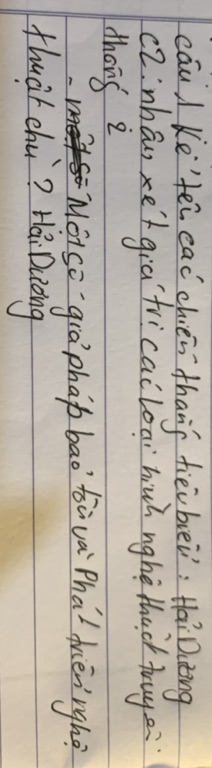 câu 1 Kể tên các chiến thắng tiêu biểu : Hải Dương
c2. nhận xét giá trị các loại hình nghệ thuật truyền
thống ?
- Một số - giả pháp bảo tồn và Phát triển nghệ
thuật chù ? Hải Dương